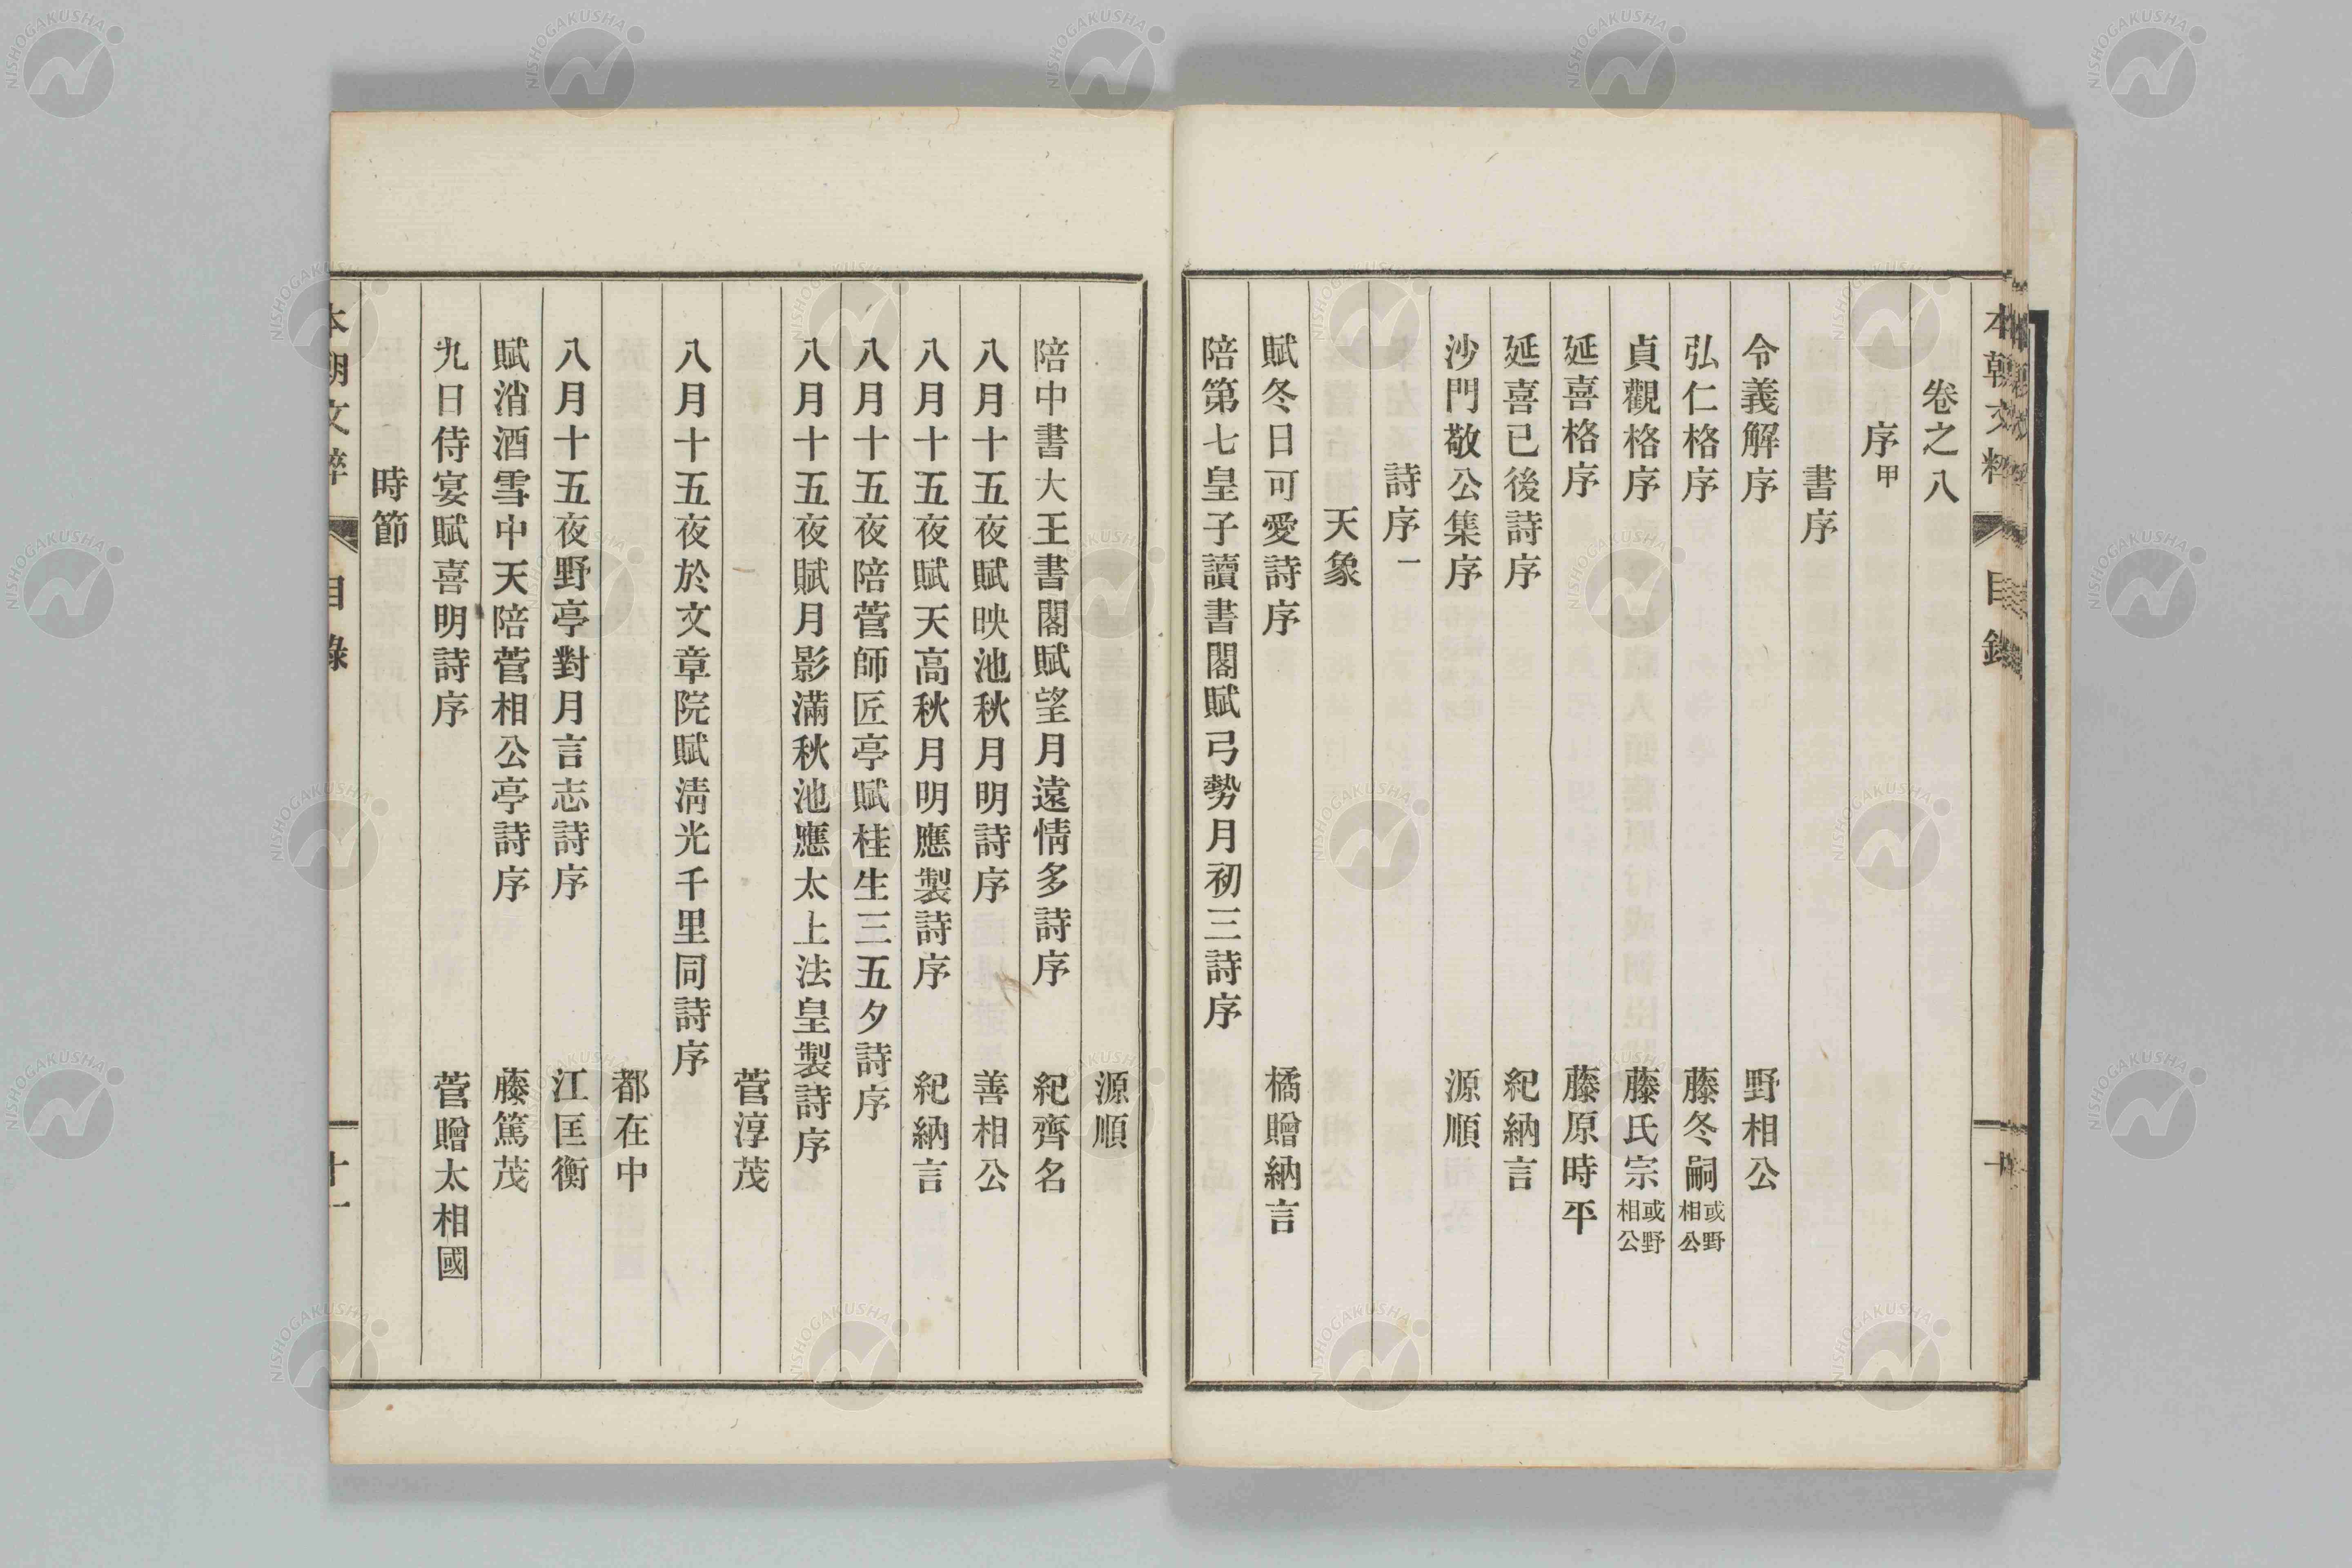 本朝文粹 目錄 十
卷之八
序甲
書序
令義解序 野相公
弘仁格序 藤冬嗣或野相公
貞觀格序 藤氏宗或野相公
延喜格序 藤原時平
延喜已後詩序 紀納言
沙門敬公集序 源順
詩序一
天象
賦冬日可愛詩序 橘贈納言
陪第七皇子讀書閣賦弓勢月初三詩序
源順
陪中書大王書閣賦望月遠情多詩序 紀齊名
八月十五夜賦映池秋月明詩序 善相公
八月十五夜賦天高秋月明應製詩序 紀納言
八月十五夜陪菅師匠亭賦桂生三五夕詩序
八月十五夜賦月影滿秋池應太上法皇製詩序
菅淳茂
八月十五夜於文章院賦淸光千里同詩序
都在中
八月十五夜野亭對月言志詩序 江匡衡
賦消酒雪中天陪菅相公亭詩序 藤篤茂
九日侍宴賦喜明詩序 菅贈太相國
時節
本朝文粹 目錄 十一
NISHOGAKUSHA